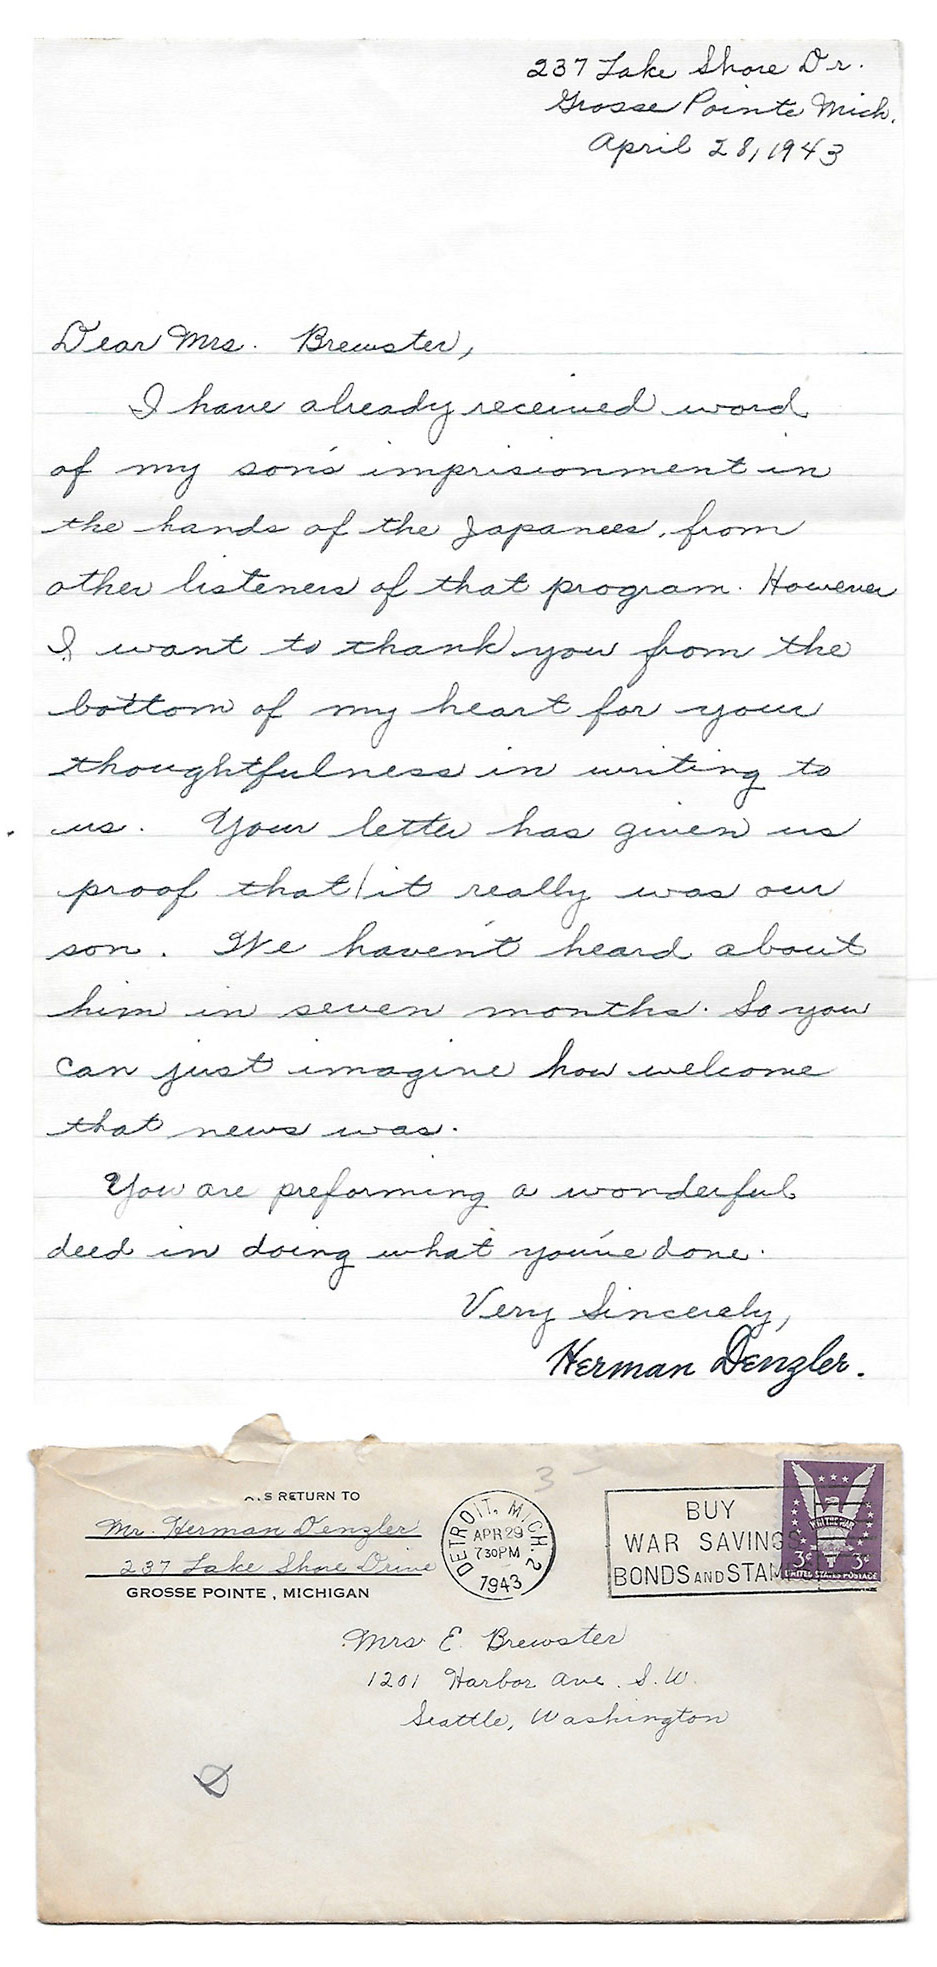 237 Lake Shore Dr.
Grosse Pointe Mich.
April 28, 1943
Dear Mrs. Brewster,
I have already received word
of my son's imprisionment in
the hands of the Japanees, from
other listeners of that program. However
I want to thank you from the
bottom of my heart for your
thoughtfulness in writing to
us. Your letter has given us
proof that it really was our
son. We haven't heard about
him in seven months. So you
can just imagine how welcome
that news was.
You are preforming a wonderful
deed in doing what you've done.
Very Sincerely,
Herman Denzler.
3
S RETURN TO
Mr. Herman Denzler
237 Lake Shore Drive
GROSSE POINTE, MICHIGAN
DETROIT, MICH. 2
APR 29
7 30 PM
1943
BUY
WAR SAVINGS
BONDS AND STAM
WIN THE WAR
3¢ 3¢
UNITED STATES POSTAGE
Mrs E. Brewster
1201 Harbor Ave. S.W.
Seattle, Washington